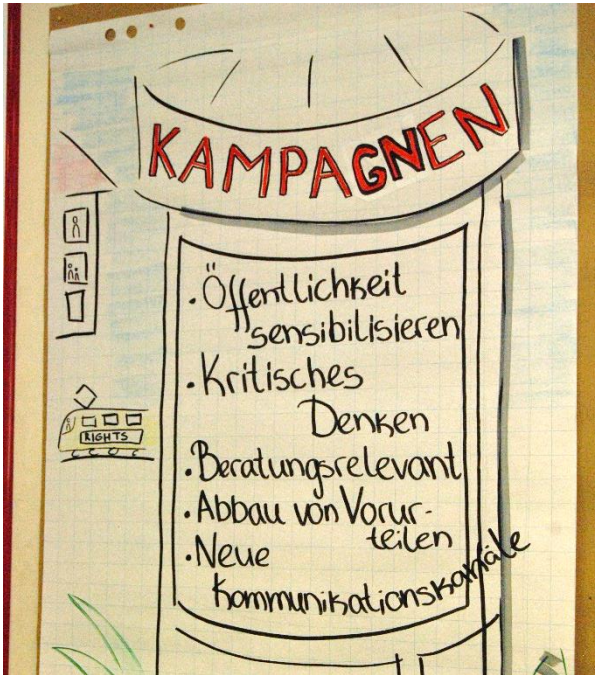 KAMPAGNEN
· Öffentlichkeit
sensibilisieren
· Kritisches
Denken
· Beratungsrelevant
· Abbau von Vorur-
teilen
· Neue
Kommunikationskanäle
RIGHTS